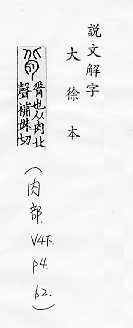 說文解字
大徐本
脊也从肉北
聲補妹切
(肉部 V4下. P4. 62.)